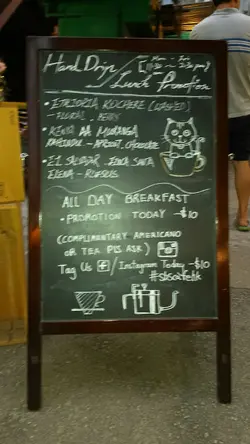 Hand Drip / Lunch Promotion
• ETHIOPIA KOCHERE (WASHED)
- FLORAL, BERRY
• KENYA AA MURANGA
- APRICOT, CHOCOLATE
• EL SALVADOR, FINCA SANTA
ELENA -
ALL DAY BREAKFAST
- PROMOTION TODAY -$10
(COMPLIMENTARY AMERICANO
OR TEA PLS ASK)
Tag Us f / Instagram Today -$10